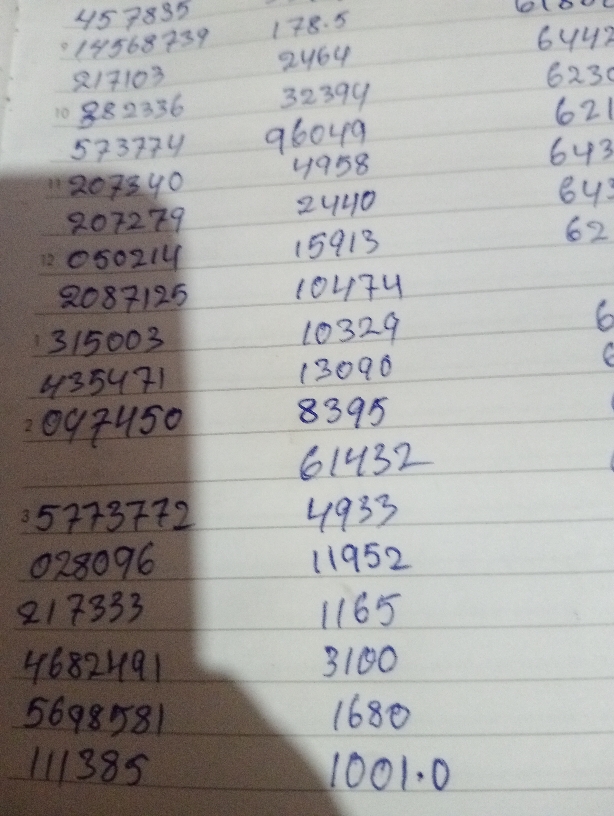 457835 178.5
14568739 2464 6442
217103 32394 623
10 882336 96049 621
573774 4958 643
11 207340 2440 643
207279 15913 62
12 050214 10474
2087125 10329
1 315003 13090
435471 8395
2 047450 61432
3 5773772 4933
028096 11952
217333 1165
4682491 3100
5698581 1680
111385 1001.0